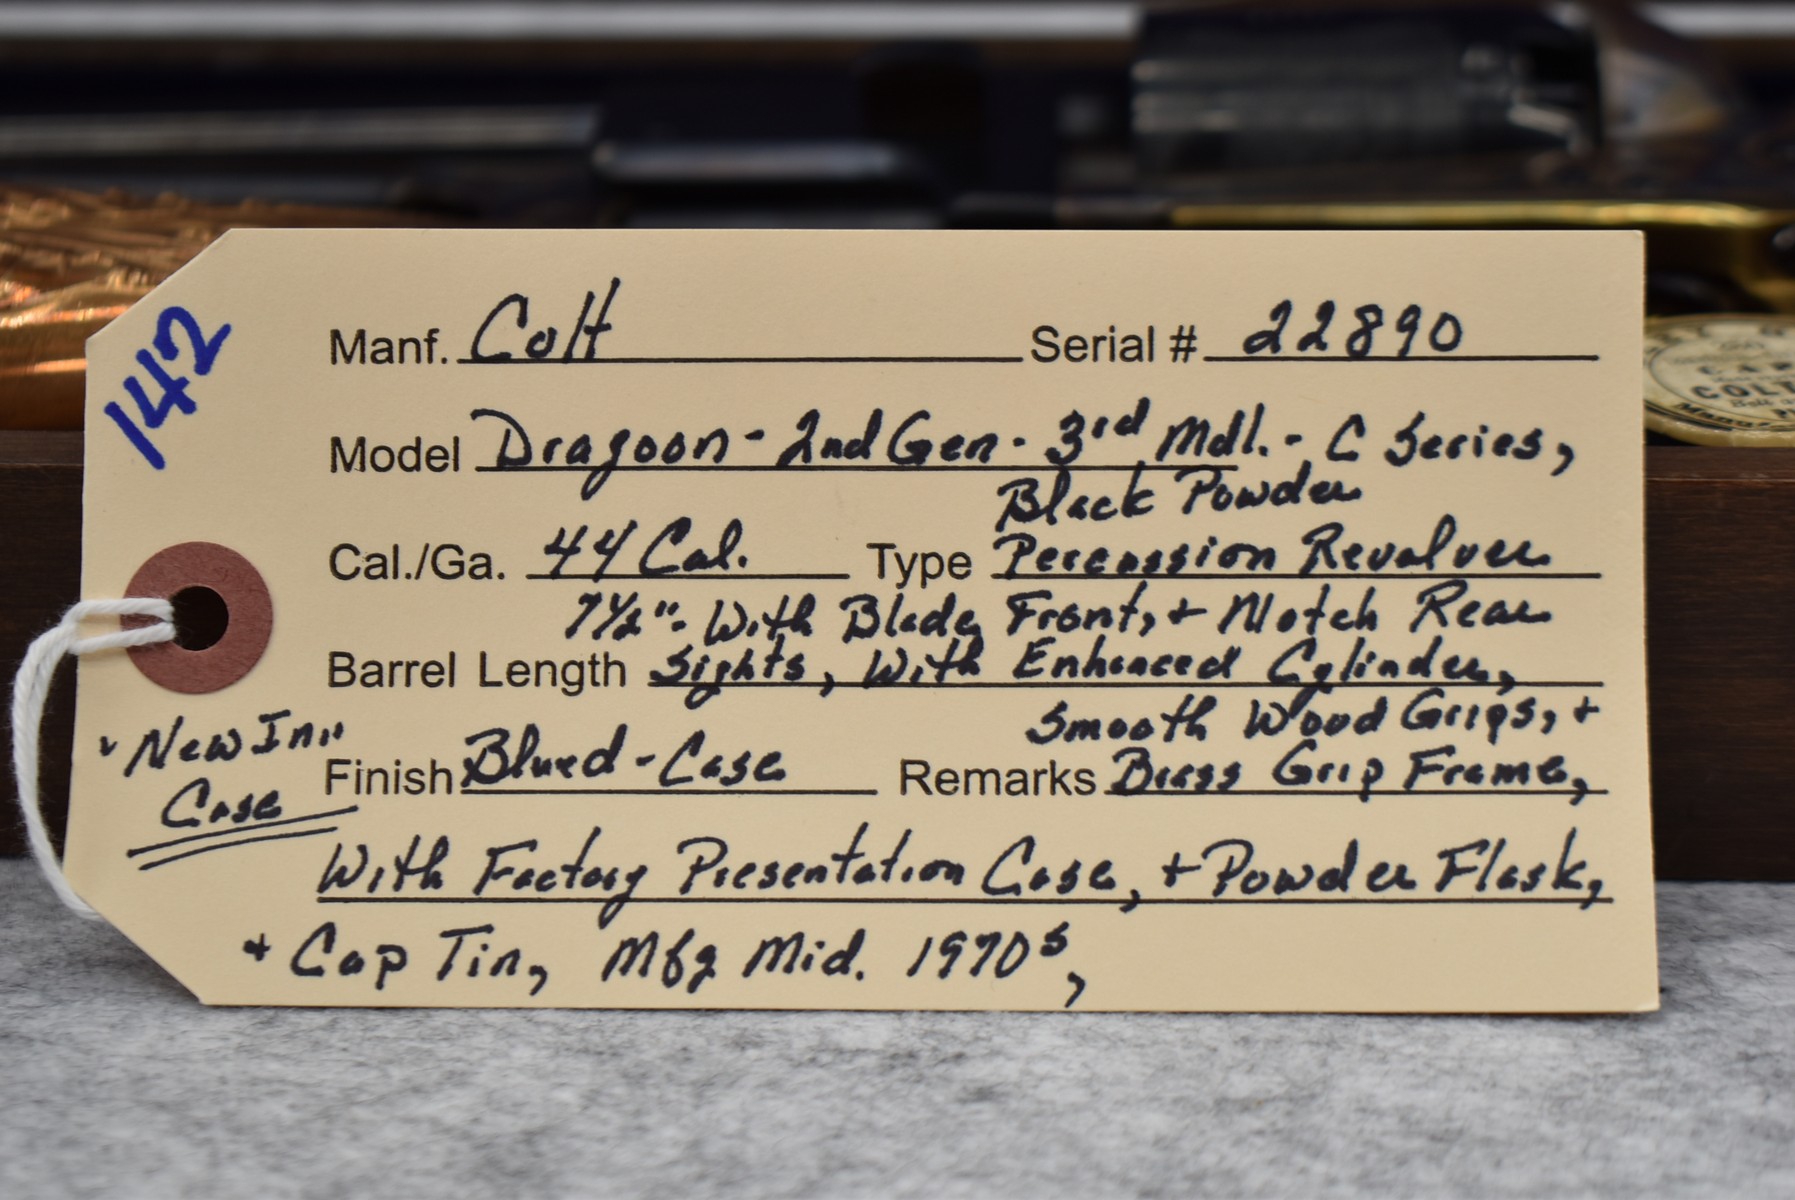 142
Manf. Colt Serial # 22890
Model Dragoon - 2nd Gen - 3rd Mdl. - C Series,
Black Powder
Cal./Ga. 44 Cal. Type Percussion Revolver
7½" - With Blade Front, + Notch Rear
Barrel Length Sights, With Enhanced Cylinder,
Smooth Wood Grips, +
"New In"
Case
Finish Blued - Case Remarks Brass Grip Frame,
With Factory Presentation Case, + Powder Flask,
+ Cap Tin, Mfg Mid. 1970s,
COLT